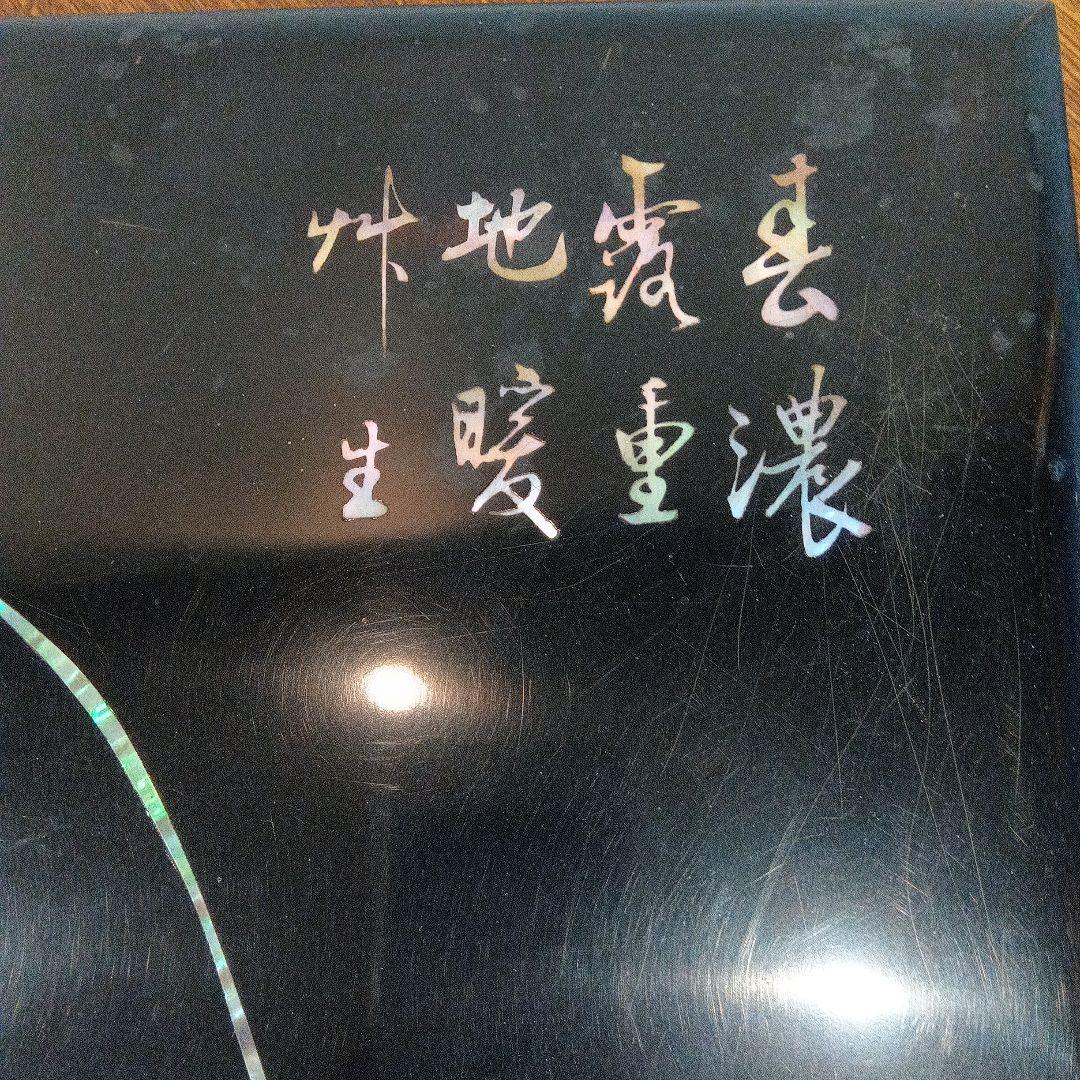 春濃
露重
地暖
艸生